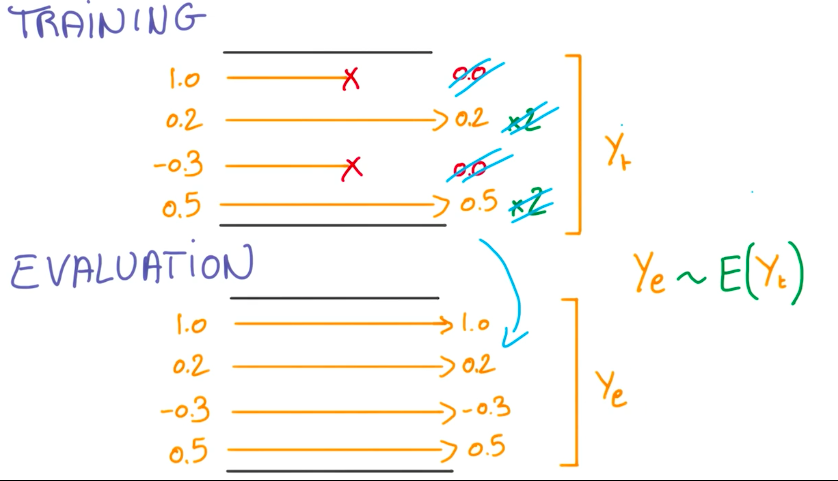 TRAINING
1.0 0.0
0.2 0.2 x2
-0.3 0.0
0.5 0.5 x2
Yt
EVALUATION
Ye ~ E(Yt)
1.0 1.0
0.2 0.2
-0.3 -0.3
0.5 0.5
Ye